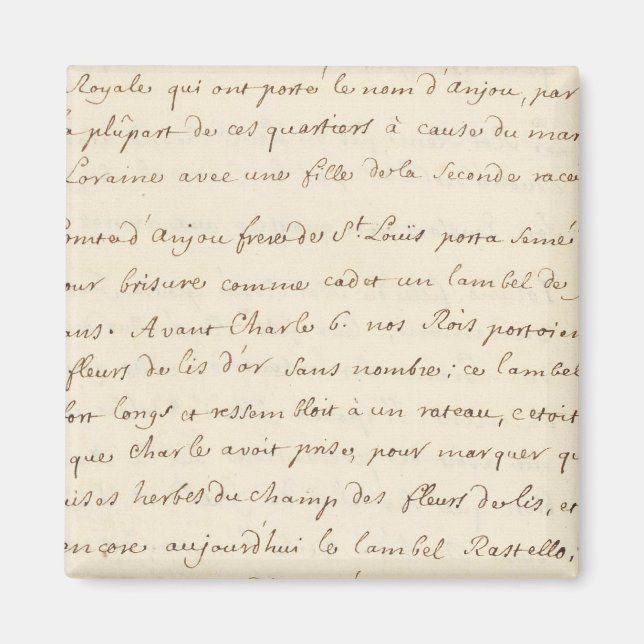 Royale qui ont porté le nom d'anjou, par
la plûpart de ces quartiers à cause du mar
Loraine avec une fille de la seconde race
Comte d'Anjou frere de St. Loüis porta semé
pour brisure comme cadet un lambel de
ans. Avant Charle 6. nos Rois portoien
fleurs de lis d'or sans nombre; ce lambel
fort longs et ressembloit à un rateau, c etoit
que Charle avoit prise, pour marquer qu
uises herbes du champ des fleurs de lis, et
encore aujourd'hui le lambel Rastello;